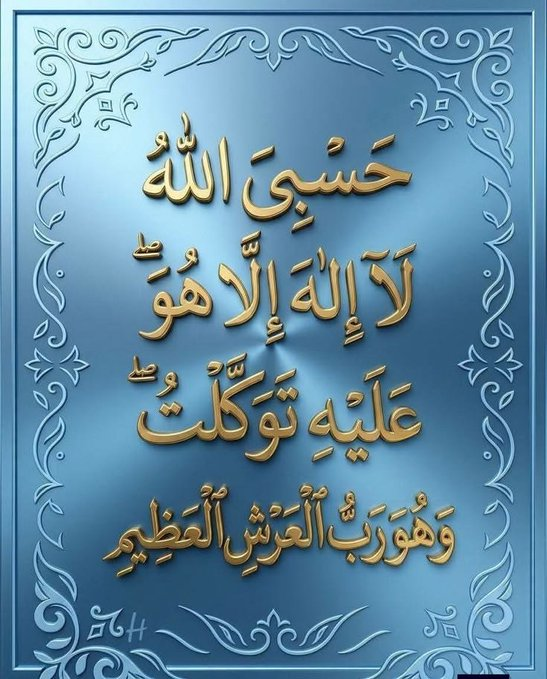 حَسْبِيَ اللّٰهُ
لَآ إِلٰهَ إِلَّا هُوَ ۖ
عَلَيْهِ تَوَكَّلْتُ ۖ
وَهُوَ رَبُّ ٱلْعَرْشِ ٱلْعَظِيمِ
H